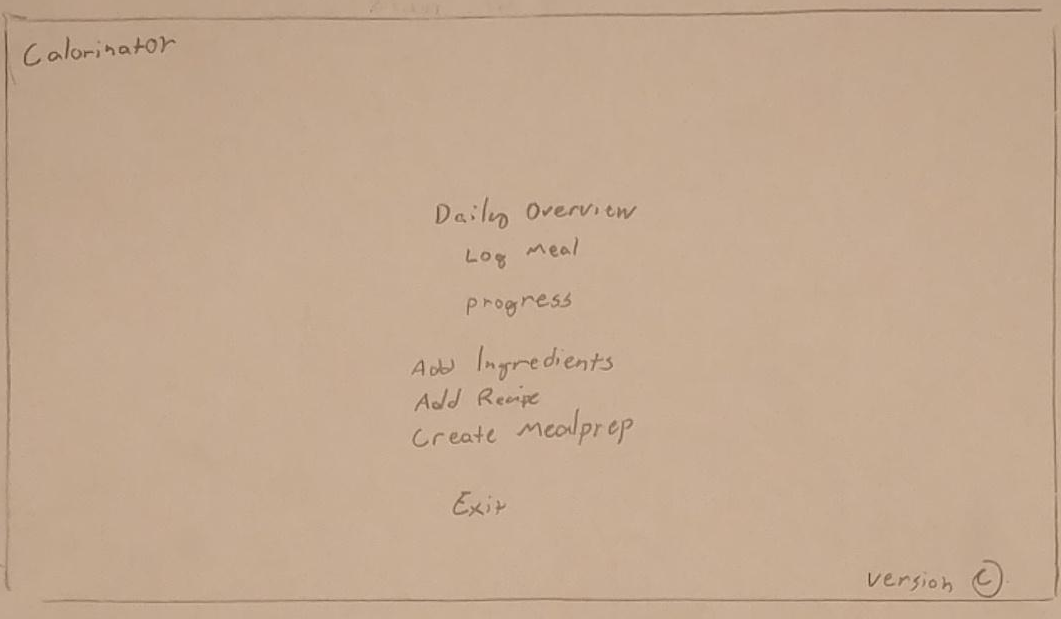 Calorinator
Daily Overview
Log Meal
progress
Add Ingredients
Add Recipe
Create Mealprep
Exit
version ©